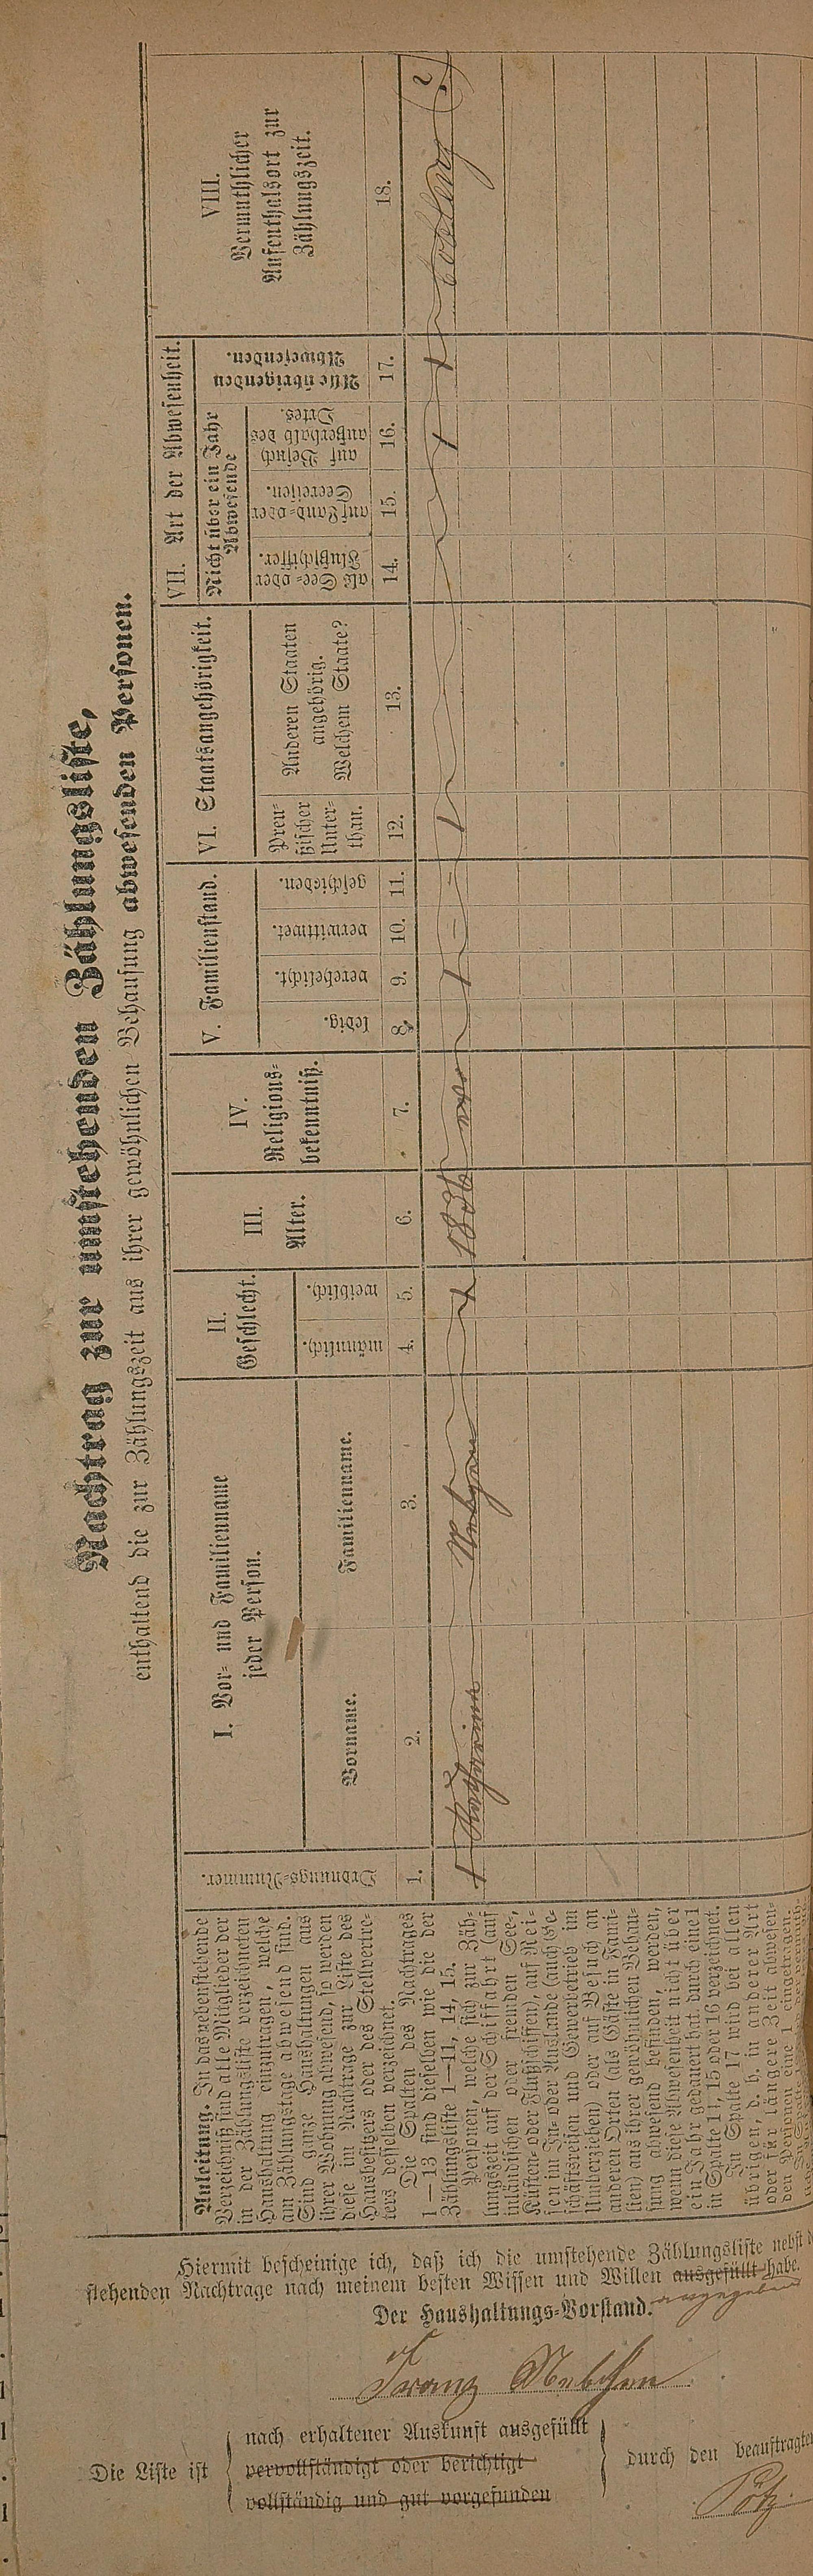 Nachtrag zur umstehenden Zählungsliste,
enthaltend die zur Zählungszeit aus ihrer gewöhnlichen Behausung abwesenden Personen.
Anleitung. In das nebenstehende
Verzeichniß sind alle Mitglieder der
in der Zählungsliste verzeichneten
Haushaltung einzutragen, welche
am Zählungstage abwesend sind.
Sind ganze Haushaltungen aus
ihrer Wohnung abwesend, so werden
diese im Nachtrage zur Liste des
Hausbesitzers oder des Stellvertre-
ters desselben verzeichnet.
Die Spalten des Nachtrages
1—13 sind dieselben wie die der
Zählungsliste 1—11, 14, 15.
Personen, welche sich zur Zäh-
lungszeit auf der Schiffahrt (auf
inländischen oder fremden See-,
Küsten- oder Flußschiffen), auf Rei-
sen im In- oder Auslande (auch Ge-
schäftsreisen und Gewerbetrieb im
Umherziehen) oder auf Besuch an
anderen Orten (als Gäste in Fami-
lien) aus ihrer gewöhnlichen Behau-
sung abwesend befinden, werden,
wenn diese Abwesenheit nicht über
ein Jahr gedauert hat durch eine 1
in Spalte 14, 15 oder 16 verzeichnet.
In Spalte 17 wird bei allen
übrigen, d. h. in anderer Art
oder für längere Zeit abwesen-
den Personen eine 1 eingetragen.
Ordnungs-Nummer.
1.
I. Vor- und Familienname
jeder Person.
Vorname.
2.
Familienname.
3.
II.
Geschlecht.
männlich.
4.
weiblich.
5.
III.
Alter.
6.
IV.
Religions-
bekenntniß.
7.
V. Familienstand.
ledig.
8.
verehelicht.
9.
verwittwet.
10.
geschieden.
11.
VI. Staatsangehörigkeit.
Preu-
ßischer
Unter-
than.
12.
Anderen Staaten
angehörig.
Welchem Staate?
13.
VII. Art der Abwesenheit.
Nicht über ein Jahr
Abwesende
als See- oder
Flußschiffer.
14.
auf Land- oder
Seereisen.
15.
auf Besuch
außerhalb des
Ortes.
16.
Alle übrigen
Abwesenden.
17.
VIII.
Vermuthlicher
Aufenthalsort zur
Zählungszeit.
18.
1 Katharina 1 1836 1 1 1 1 Coblenz (?)
Hiermit bescheinige ich, daß ich die umstehende Zählungsliste nebst
stehenden Nachtrage nach meinem besten Wissen und Willen ausgefüllt habe.
angegeben
Der Haushaltungs-Vorstand.
Franz
Die Liste ist
nach erhaltener Auskunft ausgefüllt
vervollständigt oder berichtigt
vollständig und gut vorgefunden
durch den beauftragten
Pötz